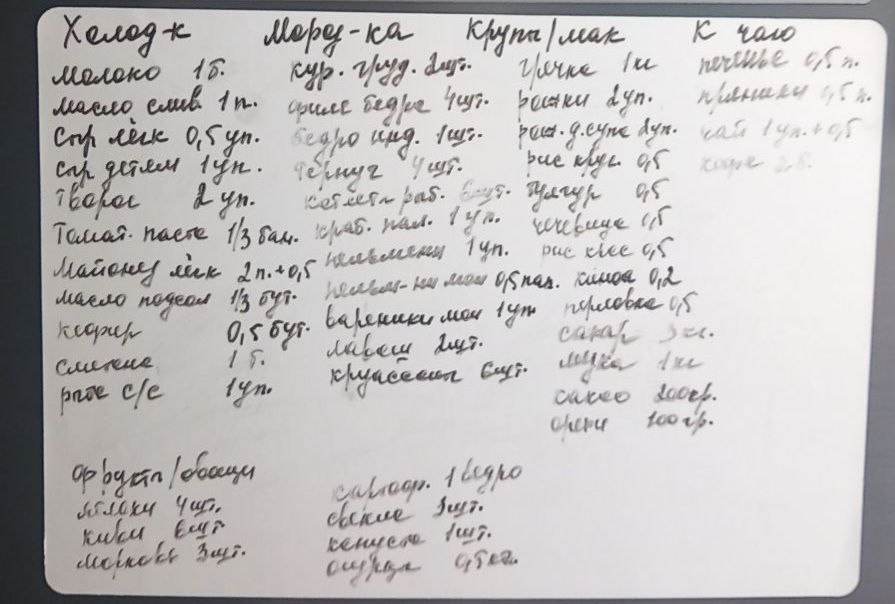 Холод-к
молоко 1 б.
масло слив 1 п.
сыр лёгк 0,5 уп.
сыр детям 1 уп.
творог 2 уп.
томат. паста 1/3 бан.
майонез лёгк 2 п. + 0,5
масло подсол 1/3 бут.
кефир 0,5 бут.
сметана 1 б.
рыба с/с 1 уп.
Мороз-ка
кур. груд. 2 шт.
филе бедра 4 шт.
бедро инд. 1 шт.
терпуг 4 шт.
котлеты рыб. 6 шт.
краб. пал. 1 уп.
пельмени 1 уп.
пельм-ни мал 0,5 пач.
вареники мал 1 уп
лаваш 2 шт.
круассаны 6 шт.
Крупы/мак
гречка 1 кг
рожки 2 уп.
рож. д. супа 2 уп.
рис кругл 0,5
булгур 0,5
чечевица 0,5
рис 0,5
киноа 0,2
перловка 0,5
сахар 3 кг.
мука 1 кг
какао 200 гр.
орехи 100 гр.
К чаю
печенье 0,5 п.
пряники 0,5 п.
чай 1 уп. + 0,5
кофе 2 б.
фрукты/овощи
яблоки 4 шт.
киви 6 шт
морковь 3 шт.
картоф. 1 ведро
свёкла 3 шт.
капуста 1 шт.
огурцы 0,5 кг.